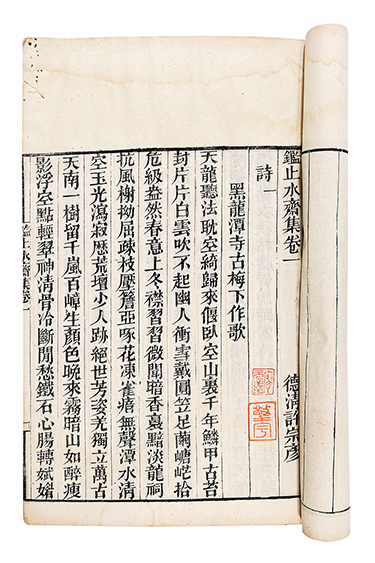 鑑止水齋集卷一
德清許宗彥
詩一
黑龍潭寺古梅下作歌
天龍聽法耽空綺歸來偃臥空山裏千年鱗甲古苔
封片片白雲吹不起幽人衝雪戴圓笠足繭嵣㟐拾
危級盎然春意上冬襟習習微聞暗香裛黯淡龍祠
抗風榭拗屈疎枝壓簷亞啄花凍雀瘖無聲潭水清
空玉光瀉寂歷荒壇少人跡絕世芳姿羌獨立萬古
天南一樹留千嵐百嶂生顏色晚來霧暗山如醉瘦
影浮空點輕翠神清骨冷斷閒愁鐵石心腸轉斌媚
鑑止水齋集卷一